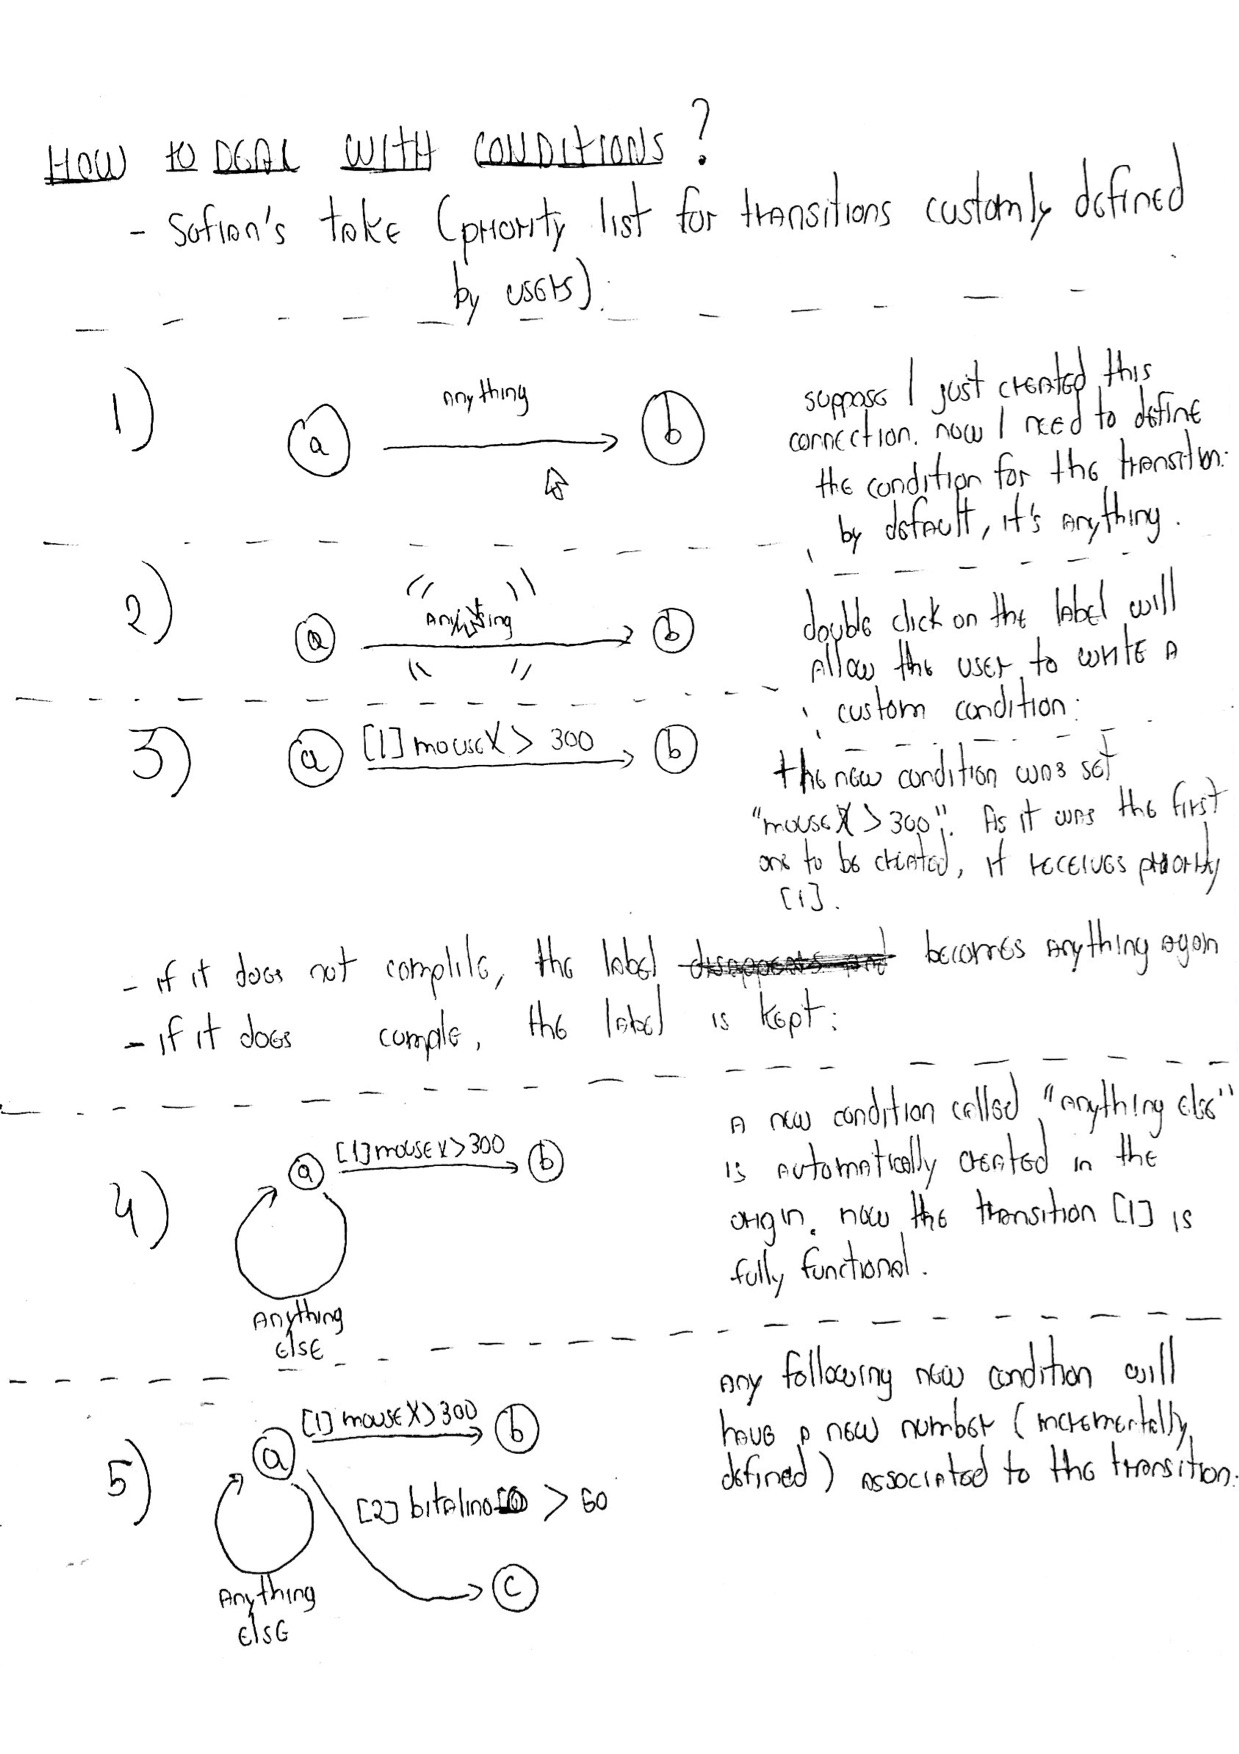 HOW to DEAL WITH CONDITIONS?
- Sofian's take (priority list for transitions customly defined
by users):
1)
anything
a
b
suppose I just created this
connection. now I need to define
the condition for the transition:
by default, it's anything.
2)
Anything
a
b
double click on the label will
allow the user to write a
custom condition:
3)
a
[1] mouseX > 300
b
the new condition was set
"mouseX > 300". As it was the first
one to be created, it receives priority
[1].
- if it does not complile, the label disappears and becomes anything again
- if it does comple, the label is kept:
4)
a
[1] mouseX > 300
b
Anything
Else
A new condition called "anything else"
is automatically created in the
origin. now the transition [1] is
fully functional.
5)
a
[1] mouseX > 300
b
[2] bitalino > 60
c
Anything
else
Any following new condition will
have a new number (incrementally
defined) associated to the transition.